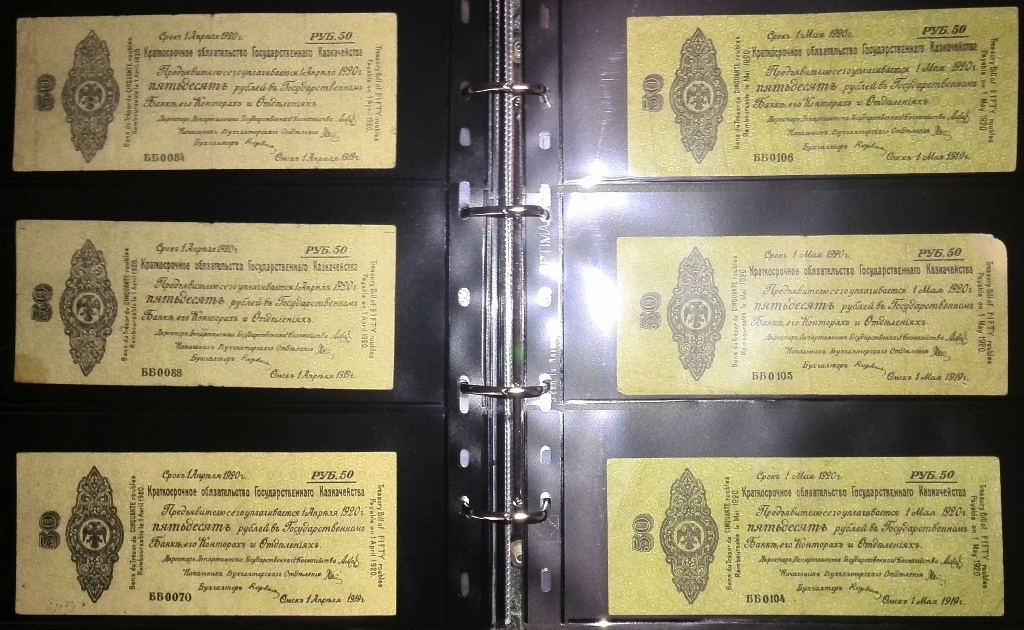 Срокъ 1 Апрѣля 1920 г.
РУБ. 50
Краткосрочное обязательство Государственнаго Казначейства
Предъявителю сего уплачивается 1 Апрѣля 1920 г.
пятьдесятъ рублей въ Государственномъ
Банкѣ, его Конторахъ и Отдѣленіяхъ.
Директоръ Департамента Государственнаго Казначейства
Начальникъ Бухгалтерскаго Отдѣленія
Бухгалтеръ
ББ0084
Омскъ 1 Апрѣля 1919 г.
50
Bons du Trésor de CINQUANTE roubles
Remboursable le 1 Avril 1920.
Treasury Bill of FIFTY roubles
Payable on 1 April 1920.
Срокъ 1 Апрѣля 1920 г.
РУБ. 50
Краткосрочное обязательство Государственнаго Казначейства
Предъявителю сего уплачивается 1 Апрѣля 1920 г.
пятьдесятъ рублей въ Государственномъ
Банкѣ, его Конторахъ и Отдѣленіяхъ.
Директоръ Департамента Государственнаго Казначейства
Начальникъ Бухгалтерскаго Отдѣленія
Бухгалтеръ
ББ0068
Омскъ 1 Апрѣля 1919 г.
50
Bons du Trésor de CINQUANTE roubles
Remboursable le 1 Avril 1920.
Treasury Bill of FIFTY roubles
Payable on 1 April 1920.
Срокъ 1 Апрѣля 1920 г.
РУБ. 50
Краткосрочное обязательство Государственнаго Казначейства
Предъявителю сего уплачивается 1 Апрѣля 1920 г.
пятьдесятъ рублей въ Государственномъ
Банкѣ, его Конторахъ и Отдѣленіяхъ.
Директоръ Департамента Государственнаго Казначейства
Начальникъ Бухгалтерскаго Отдѣленія
Бухгалтеръ
ББ0070
Омскъ 1 Апрѣля 1919 г.
50
Bons du Trésor de CINQUANTE roubles
Remboursable le 1 Avril 1920.
Treasury Bill of FIFTY roubles
Payable on 1 April 1920.
Срокъ 1 Мая 1920 г.
РУБ. 50
Краткосрочное обязательство Государственнаго Казначейства
Предъявителю сего уплачивается 1 Мая 1920 г.
пятьдесятъ рублей въ Государственномъ
Банкѣ, его Конторахъ и Отдѣленіяхъ.
Директоръ Департамента Государственнаго Казначейства
Начальникъ Бухгалтерскаго Отдѣленія
Бухгалтеръ
ББ0106
Омскъ 1 Мая 1919 г.
50
Bons du Trésor de CINQUANTE roubles
Remboursable le 1 Mai 1920.
Treasury Bill of FIFTY roubles
Payable on 1 May 1920.
Срокъ 1 Мая 1920 г.
РУБ. 50
Краткосрочное обязательство Государственнаго Казначейства
Предъявителю сего уплачивается 1 Мая 1920 г.
пятьдесятъ рублей въ Государственномъ
Банкѣ, его Конторахъ и Отдѣленіяхъ.
Директоръ Департамента Государственнаго Казначейства
Начальникъ Бухгалтерскаго Отдѣленія
Бухгалтеръ
ББ0105
Омскъ 1 Мая 1919 г.
50
Bons du Trésor de CINQUANTE roubles
Remboursable le 1 Mai 1920.
Treasury Bill of FIFTY roubles
Payable on 1 May 1920.
Срокъ 1 Мая 1920 г.
РУБ. 50
Краткосрочное обязательство Государственнаго Казначейства
Предъявителю сего уплачивается 1 Мая 1920 г.
пятьдесятъ рублей въ Государственномъ
Банкѣ, его Конторахъ и Отдѣленіяхъ.
Директоръ Департамента Государственнаго Казначейства
Начальникъ Бухгалтерскаго Отдѣленія
Бухгалтеръ
ББ0104
Омскъ 1 Мая 1919 г.
50
Bons du Trésor de CINQUANTE roubles
Remboursable le 1 Mai 1920.
Treasury Bill of FIFTY roubles
Payable on 1 May 1920.